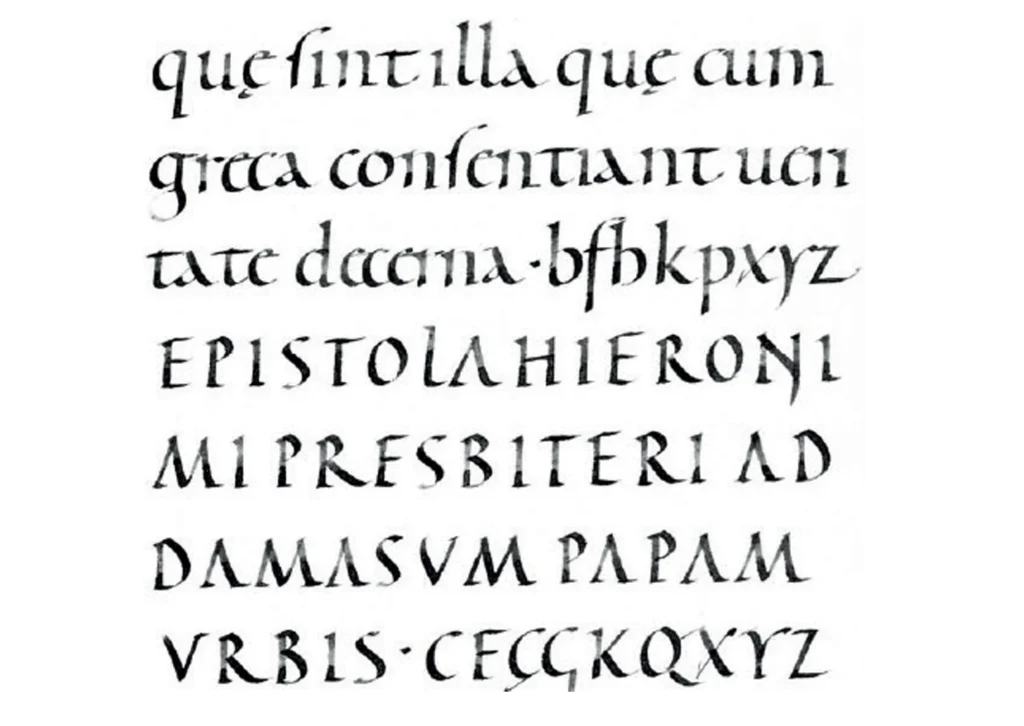 quę ſint illa quę cum
greca conſentiant ueri
tate decerna · bfhkpxyz
EPISTOLA HIERONI
MI PRESBITERI AD
DAMASVM PAPAM
VRBIS · CFÇGKQXYZ